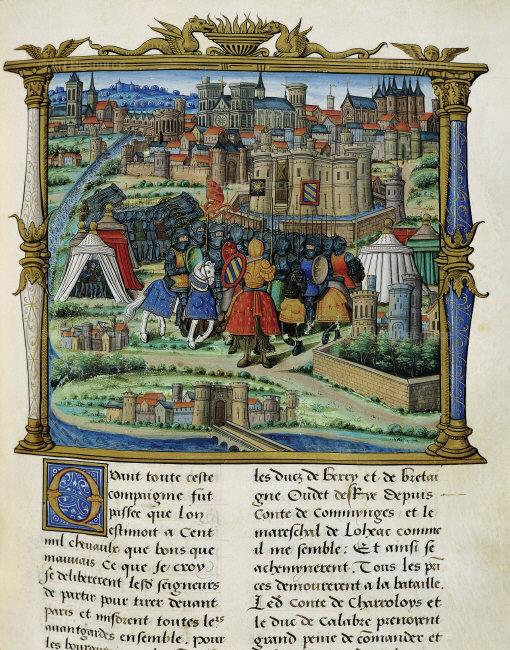 Quant toute ceste
compaigne fut
passee que lon
estimoit a Cent
mil chevaulx que bons que
mauvais Ce que Je croy
se delibererent lesd seigneurs
de partir pour tirer devant
paris et misdrent toutes leurs
avantgardes ensemble. Pour
les
les ducz de Berry et de bretai
gne Oudet de Rye depuis
Conte de Comminges et le
mareschal de Loheac comme
il me semble: Et ainsi se
acheminerent. Tous les prin
ces demourerent a la bataille.
Led Conte de Charroloys et
le duc de Calabre prenoient
grand peine de commander et